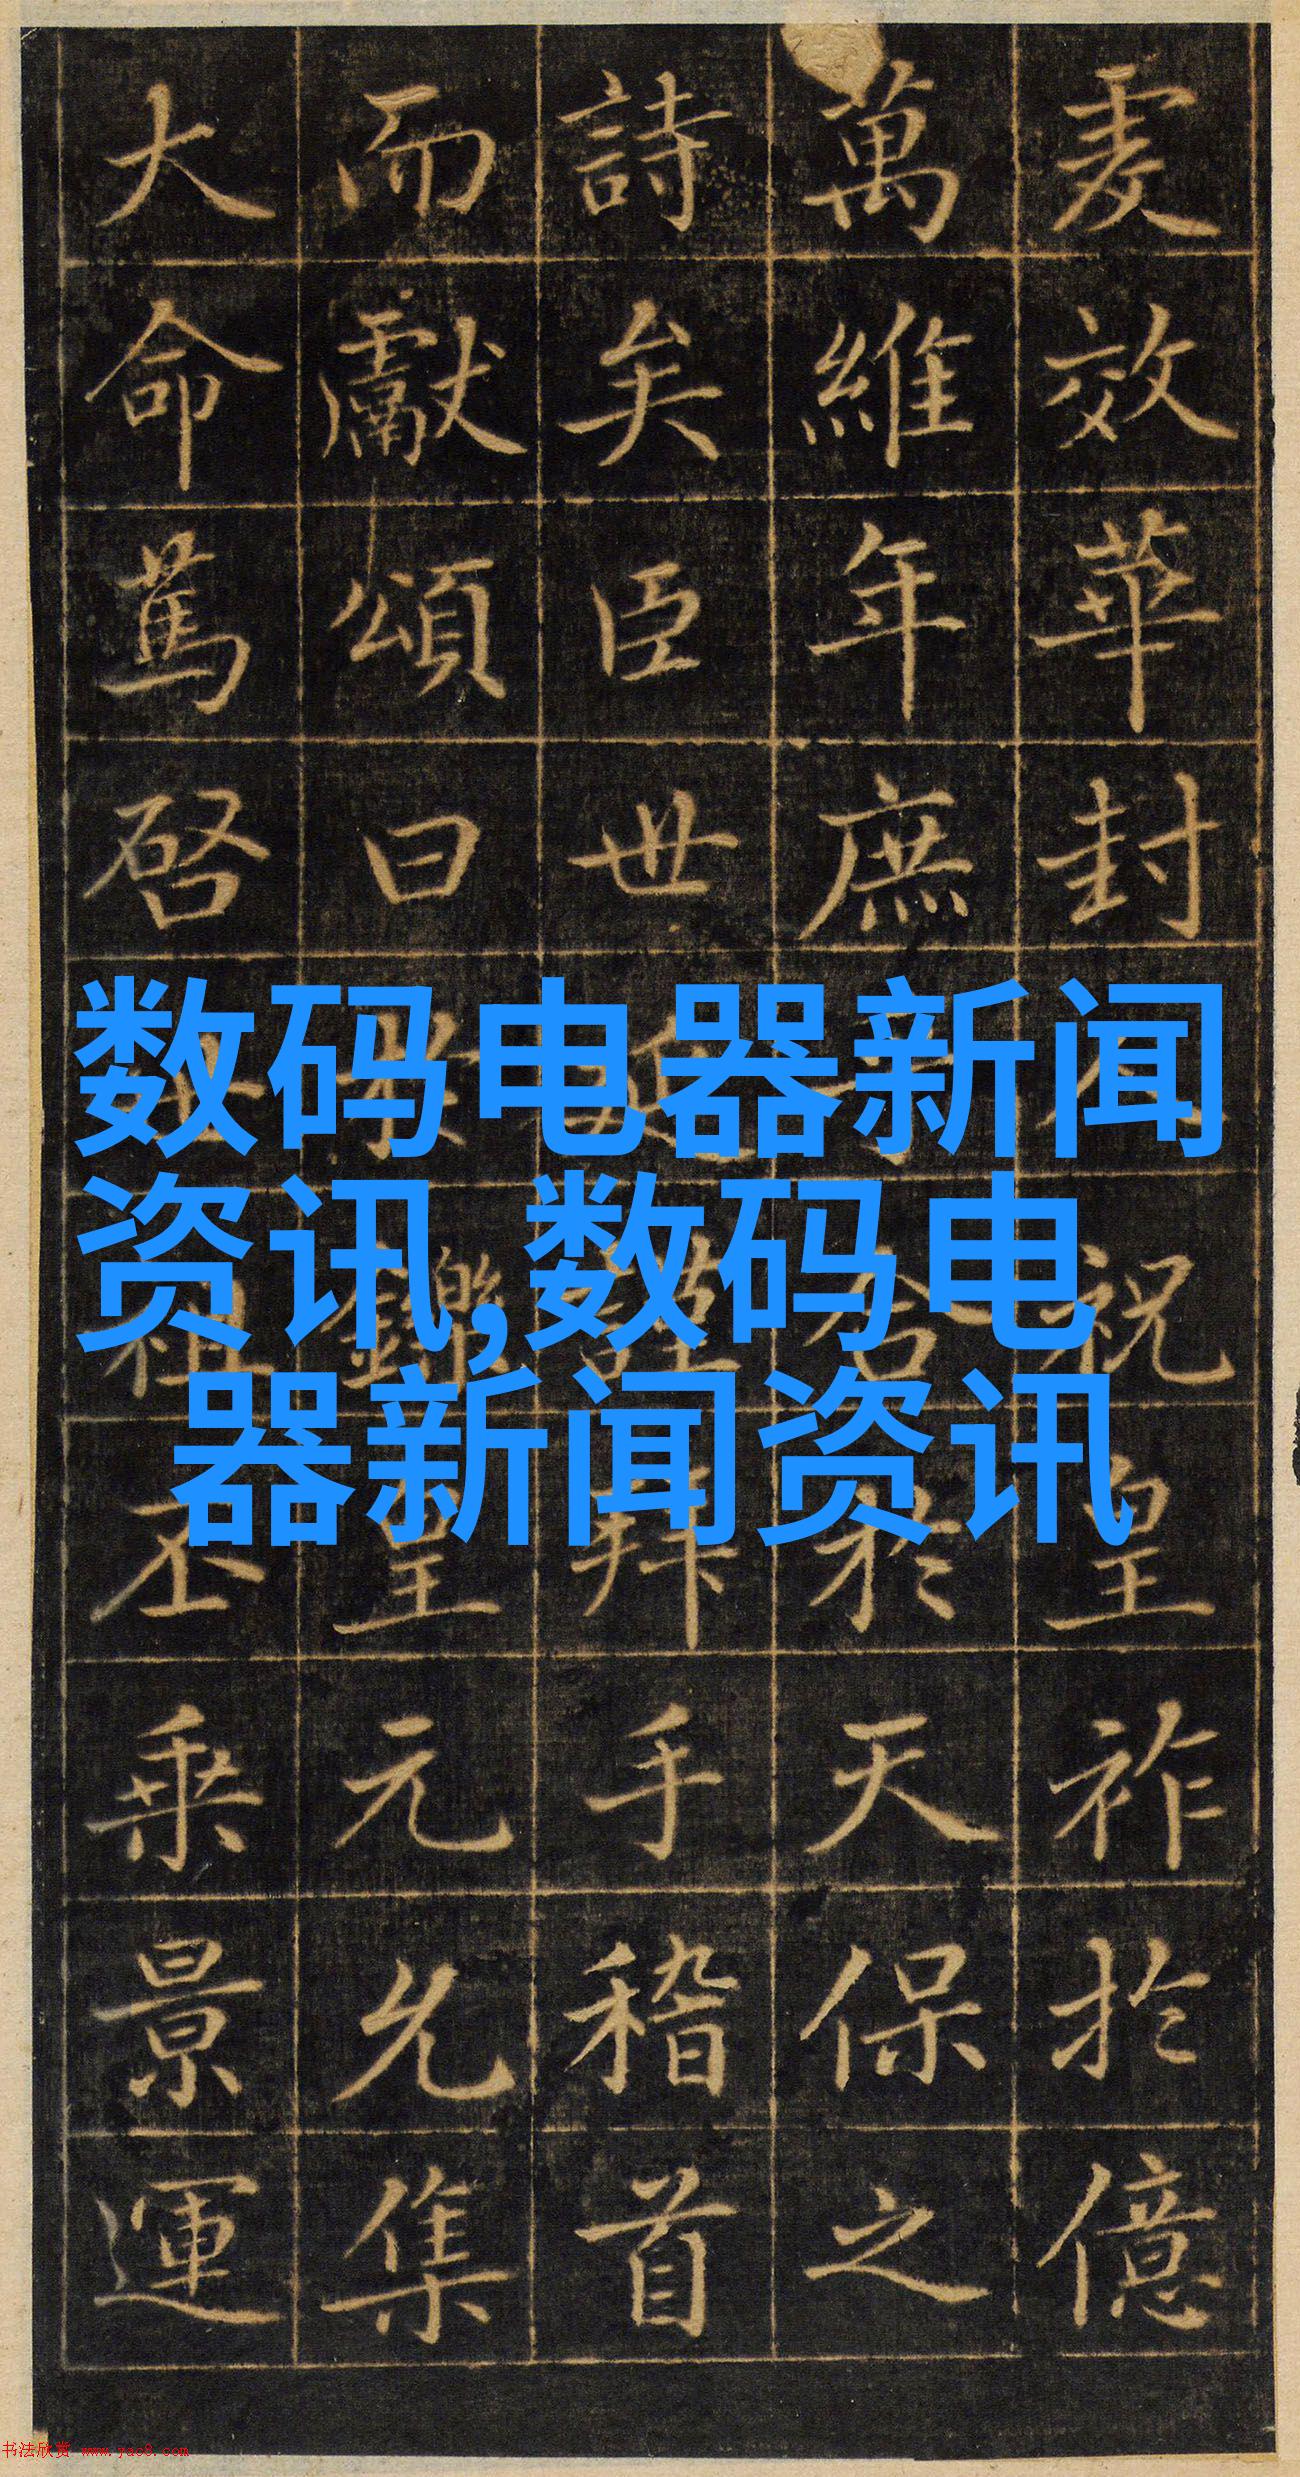 爰效華封祝皇祚於億
萬維年庶合於天保之
詩矣臣世謹拜手稽首
而獻頌曰於鑠皇元允集
大命篤啓祖丕乘景運
数码电器新闻
资讯,数码电
器新闻资讯
书法欣赏 www.yac8.com